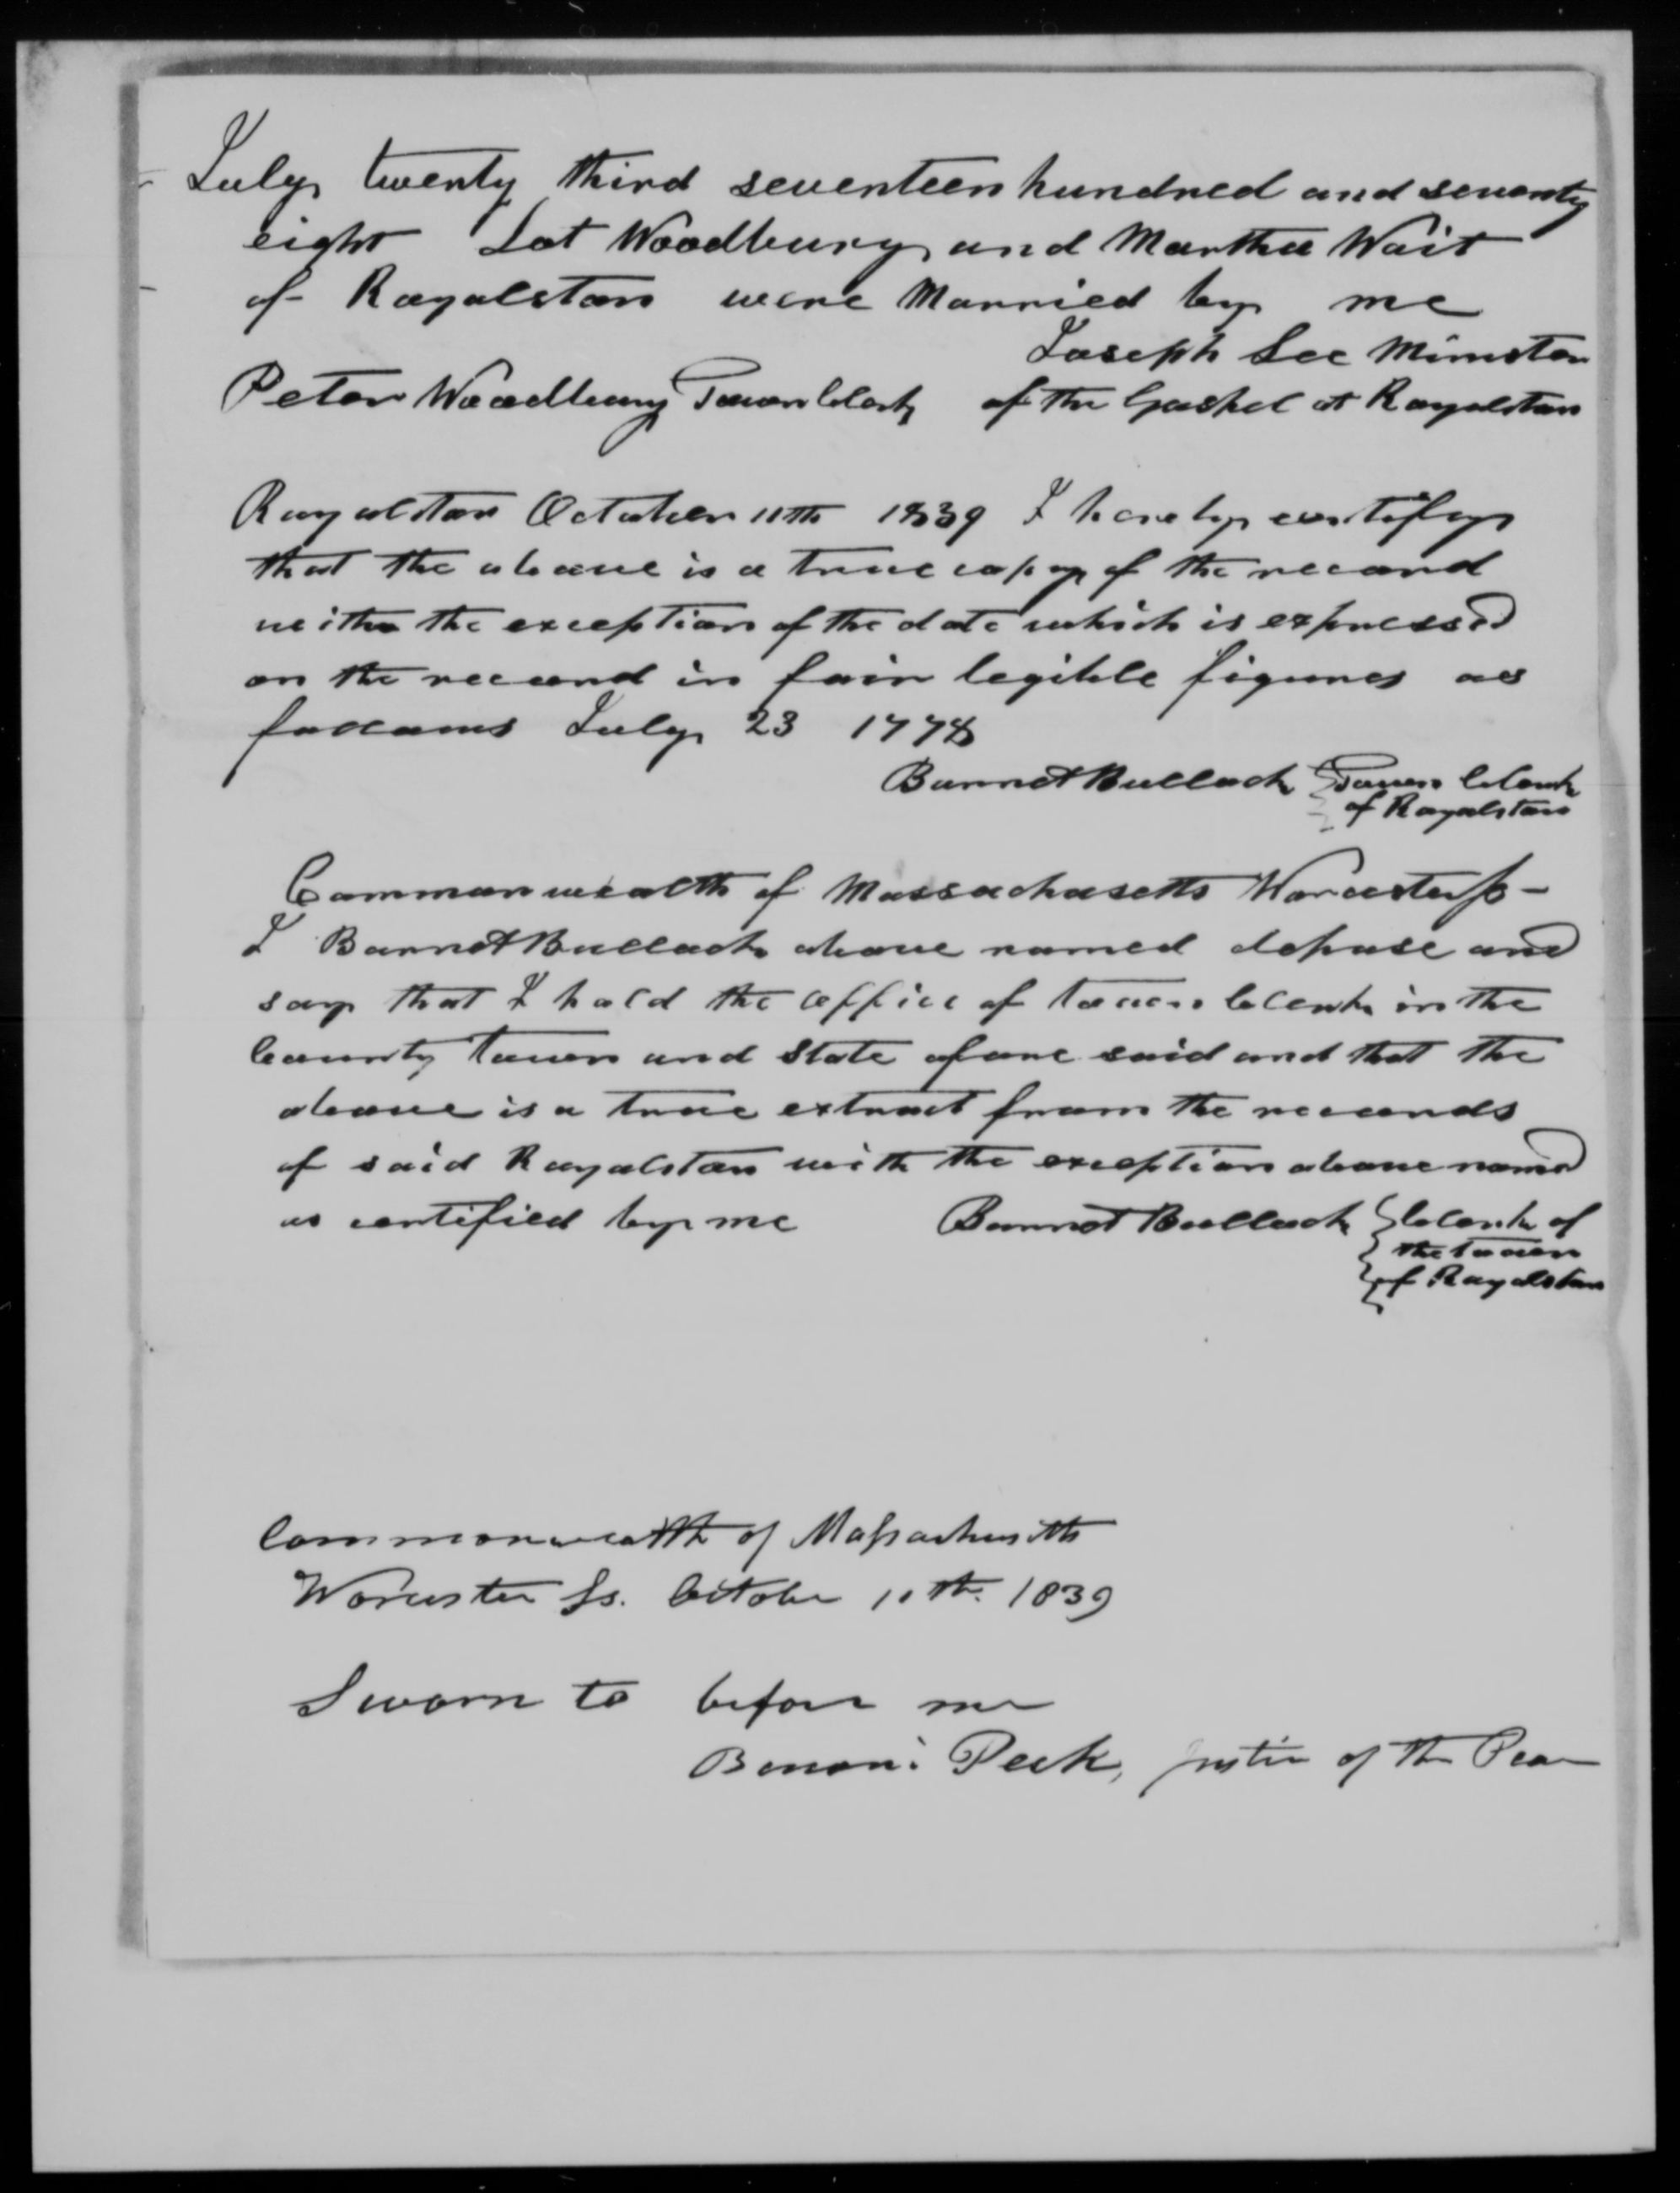 July twenty third seventeen hundred and seventy
eight Lot Woodbury and Martha Wait
of Royalston were Married by me
Joseph Lee Minister
Peter Woodbury Town Clerk of the Gospel at Royalston
Royalston October 11th 1839 I hereby certify
that the above is a true copy of the record
with the exception of the date which is expressed
on the record in fair legible figures as
follows July 23 1778
Barnet Bullock Town Clerk
of Royalston
Commonwealth of Massachusetts Worcester ss -
I Barnet Bullock above named depose and
say that I hold the office of town Clerk in the
County town and State afore said and that the
above is a true extract from the records
of said Royalston with the exception above named
as certified by me Barnet Bullock Clerk of
the town
of Royalston
Commonwealth of Massachusetts
Worcester Ss. October 11th. 1839
Sworn to before me
Benoni Peck, Justice of the Peace